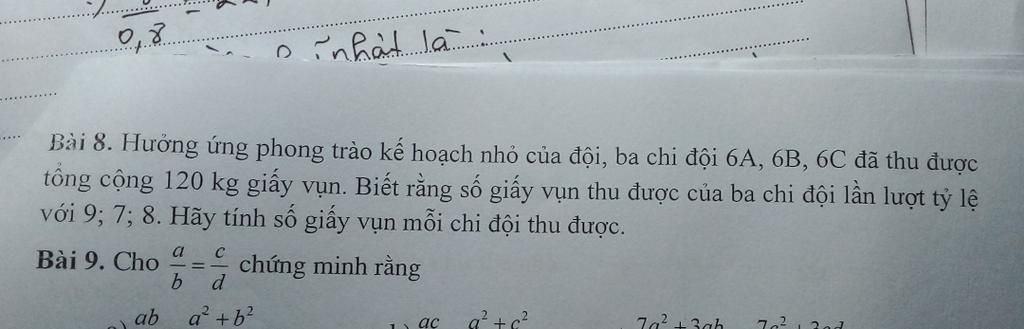 0,8
nhật là :
Bài 8. Hưởng ứng phong trào kế hoạch nhỏ của đội, ba chi đội 6A, 6B, 6C đã thu được
tổng cộng 120 kg giấy vụn. Biết rằng số giấy vụn thu được của ba chi đội lần lượt tỷ lệ
với 9; 7; 8. Hãy tính số giấy vụn mỗi chi đội thu được.
Bài 9. Cho a/b = c/d chứng minh rằng
ab a² + b² ac a² + c² 7a² + 3ab